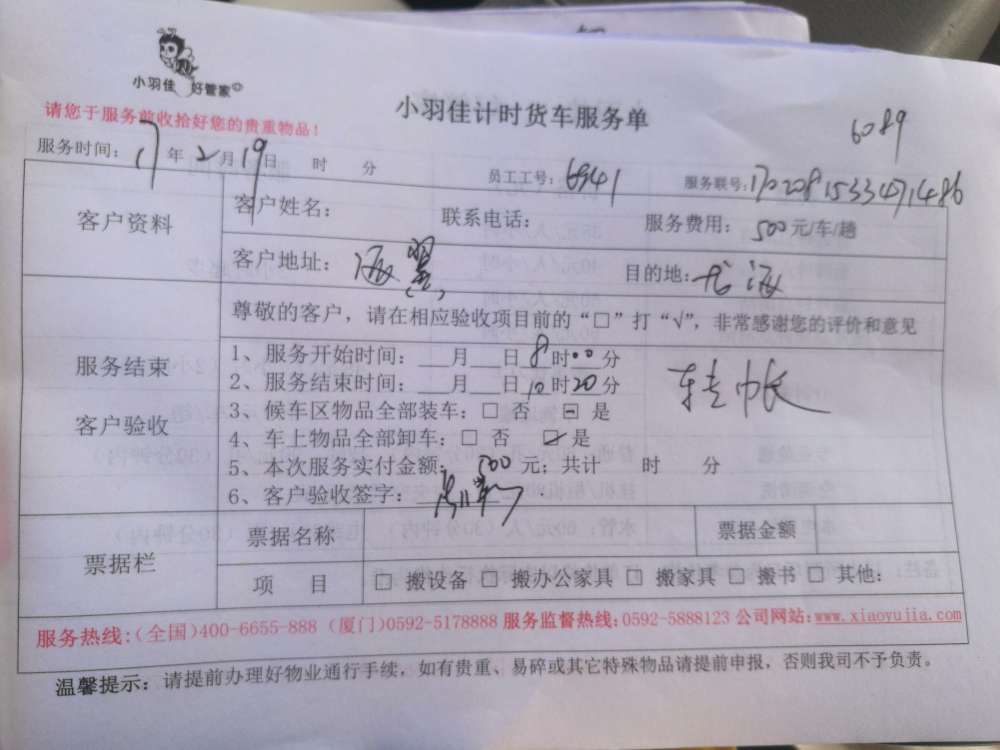 小羽佳 好管家
请您于服务前收拾好您的贵重物品！
小羽佳计时货车服务单
6089
服务时间：17年2月19日 时 分
员工工号：6941
服务联号：17020815334471486
客户资料
客户姓名： 联系电话： 服务费用：500元/车/趟
客户地址：海翼 目的地：龙海
服务结束
客户验收
尊敬的客户，请在相应验收项目前的“□”打“√”，非常感谢您的评价和意见
1、服务开始时间：___月___日8时00分
2、服务结束时间：___月___日10时20分
转帐
3、候车区物品全部装车：□ 否 □ 是
4、车上物品全部卸车：□ 否 ☑ 是
5、本次服务实付金额：500元；共计 时 分
6、客户验收签字：
票据栏
票据名称 票据金额
项 目 □ 搬设备 □ 搬办公家具 □ 搬家具 □ 搬书 □ 其他：
服务热线：（全国）400-6655-888（厦门）0592-5178888 服务监督热线：0592-5888123 公司网站：www.xiaoyujia.com
温馨提示：请提前办理好物业通行手续，如有贵重、易碎或其它特殊物品请提前申报，否则我司不予负责。